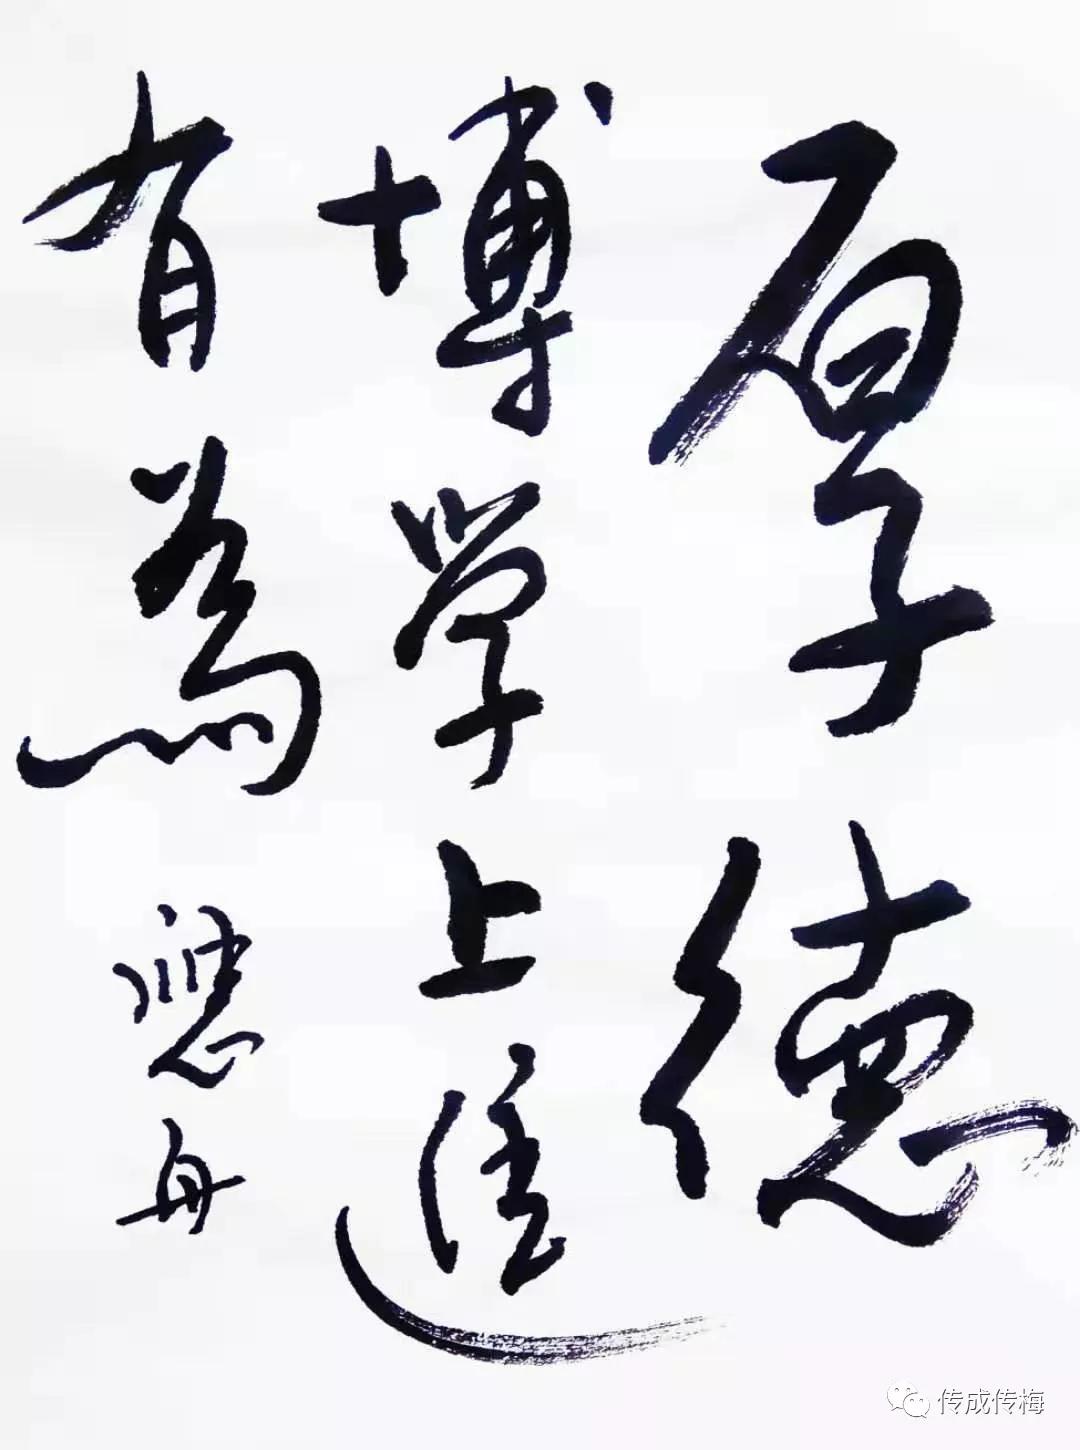 厚德
博学上進
有為
舟
传成传梅